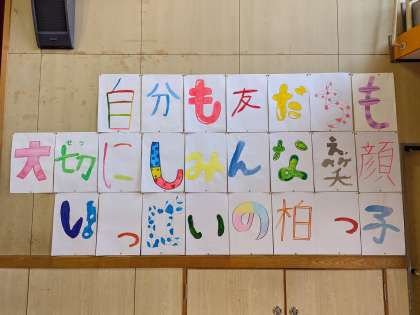 自分も友だちも
せつ え
大切にしみんな笑顔
いっぱいの柏っ子